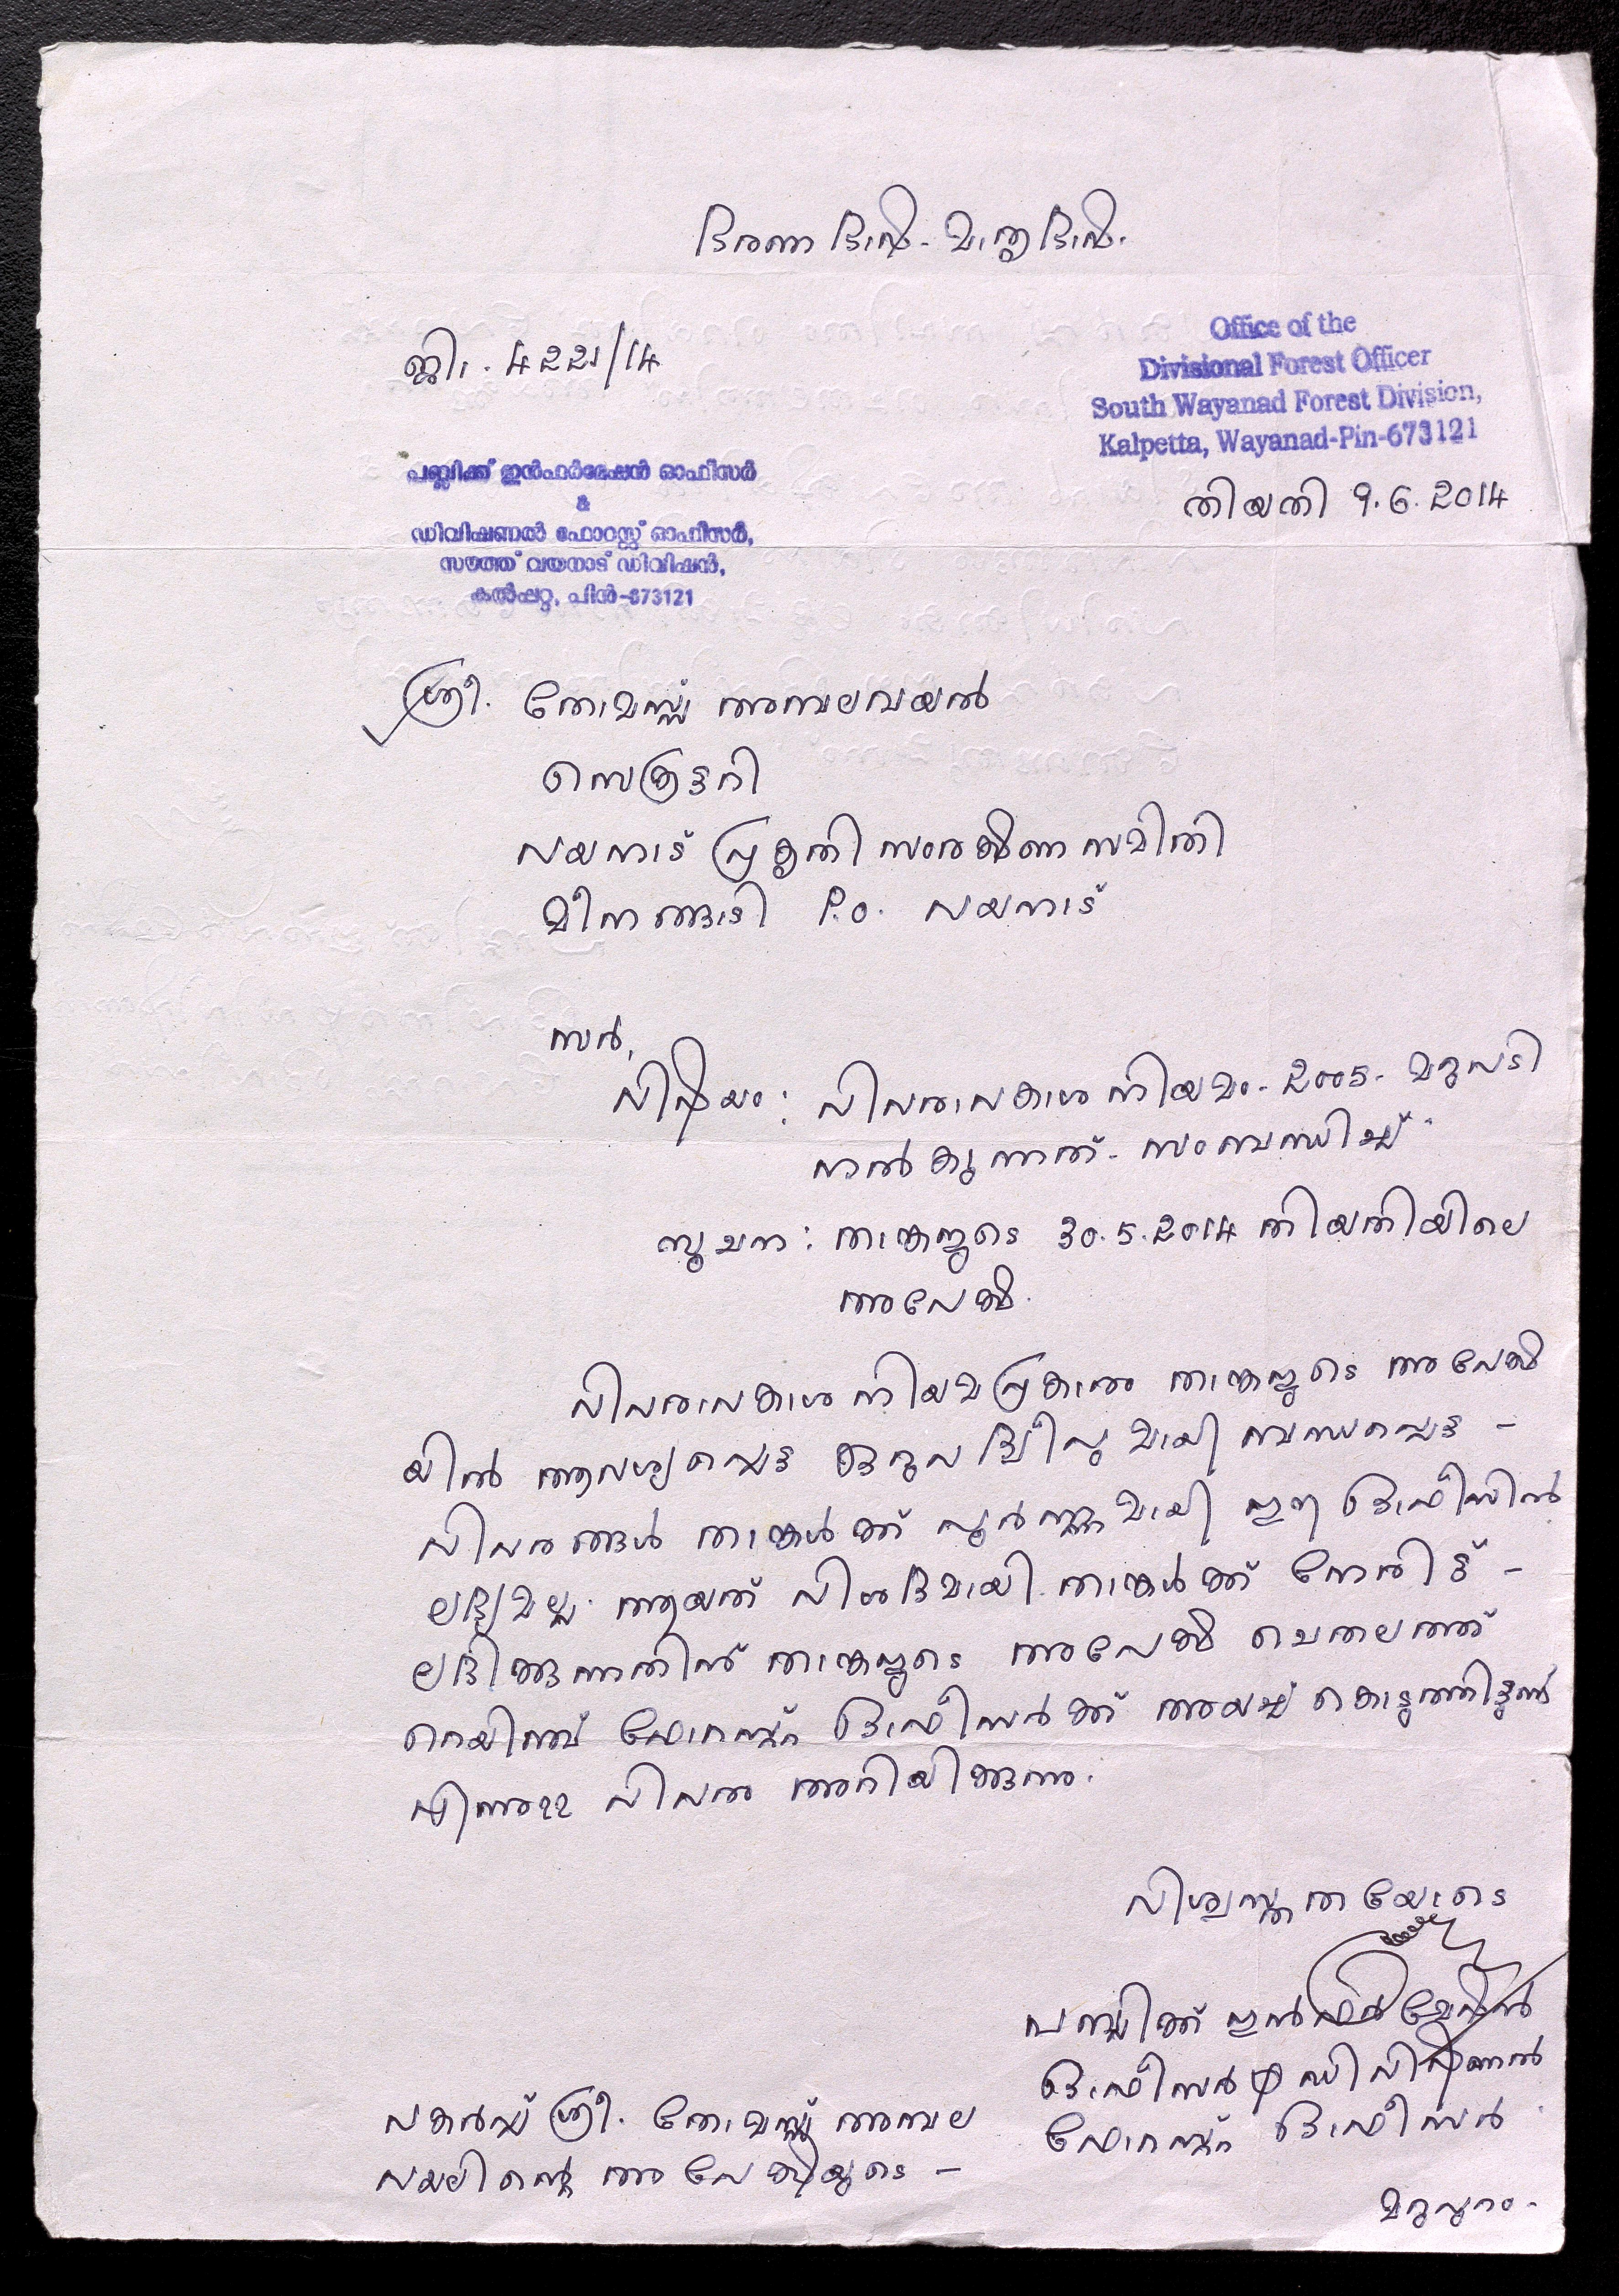 ഭരണഭാഷ - മാതൃഭാഷ.
ജി1. 4221/14
Office of the
Divisional Forest Officer
South Wayanad Forest Division,
Kalpetta, Wayanad-Pin-673121
തിയതി 9.6.2014
പബ്ലിക്ക് ഇൻഫർമേഷൻ ഓഫീസർ
&
ഡിവിഷണൽ ഫോറസ്റ്റ് ഓഫീസർ,
സൗത്ത് വയനാട് ഡിവിഷൻ,
കൽപ്പറ്റ, പിൻ-673121
ശ്രീ. തോമസ്സ് അമ്പലവയൽ
സെക്രട്ടറി
വയനാട് പ്രകൃതി സംരക്ഷണ സമിതി
മീനങ്ങാടി P.O. വയനാട്
സർ,
വിഷയം : വിവരാവകാശ നിയമം - 2005 - മറുപടി
നൽകുന്നത് - സംബന്ധിച്ച്
സൂചന : താങ്കളുടെ 30.5.2014 തിയതിയിലെ
അപേക്ഷ.
വിവരാവകാശ നിയമപ്രകാരം താങ്കളുടെ അപേക്ഷ
യിൽ ആവശ്യപ്പെട്ട കുറുവ ദ്വീപുമായി ബന്ധപ്പെട്ട -
വിവരങ്ങൾ താങ്കൾക്ക് പൂർണ്ണമായി ഈ ഓഫീസിൽ
ലഭ്യമല്ല. ആയത് വിശദമായി താങ്കൾക്ക് നേരിട്ട് -
ലഭിക്കുന്നതിന് താങ്കളുടെ അപേക്ഷ ചെതലത്ത്
റെയിഞ്ച് ഫോറസ്റ്റ് ഓഫീസർക്ക് അയച്ച് കൊടുത്തിട്ടുണ്ട്
എന്നുള്ള വിവരം അറിയിക്കുന്നു.
വിശ്വസ്തതയോടെ
പബ്ലിക്ക് ഇൻഫർമേഷൻ
ഓഫീസർ & ഡിവിഷണൽ
ഫോറസ്റ്റ് ഓഫീസർ
പകർപ്പ് ശ്രീ. തോമസ്സ് അമ്പല
വയലിന്റെ അപേക്ഷയുടെ -
മറുപുറം -